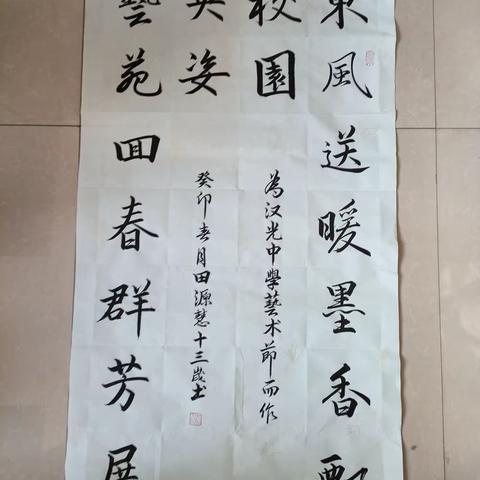 東風送暖墨香飄
校園
為汉光中學藝术節而作
藝苑囬春群芳展
英姿
癸卯春月田源慧十三歲书